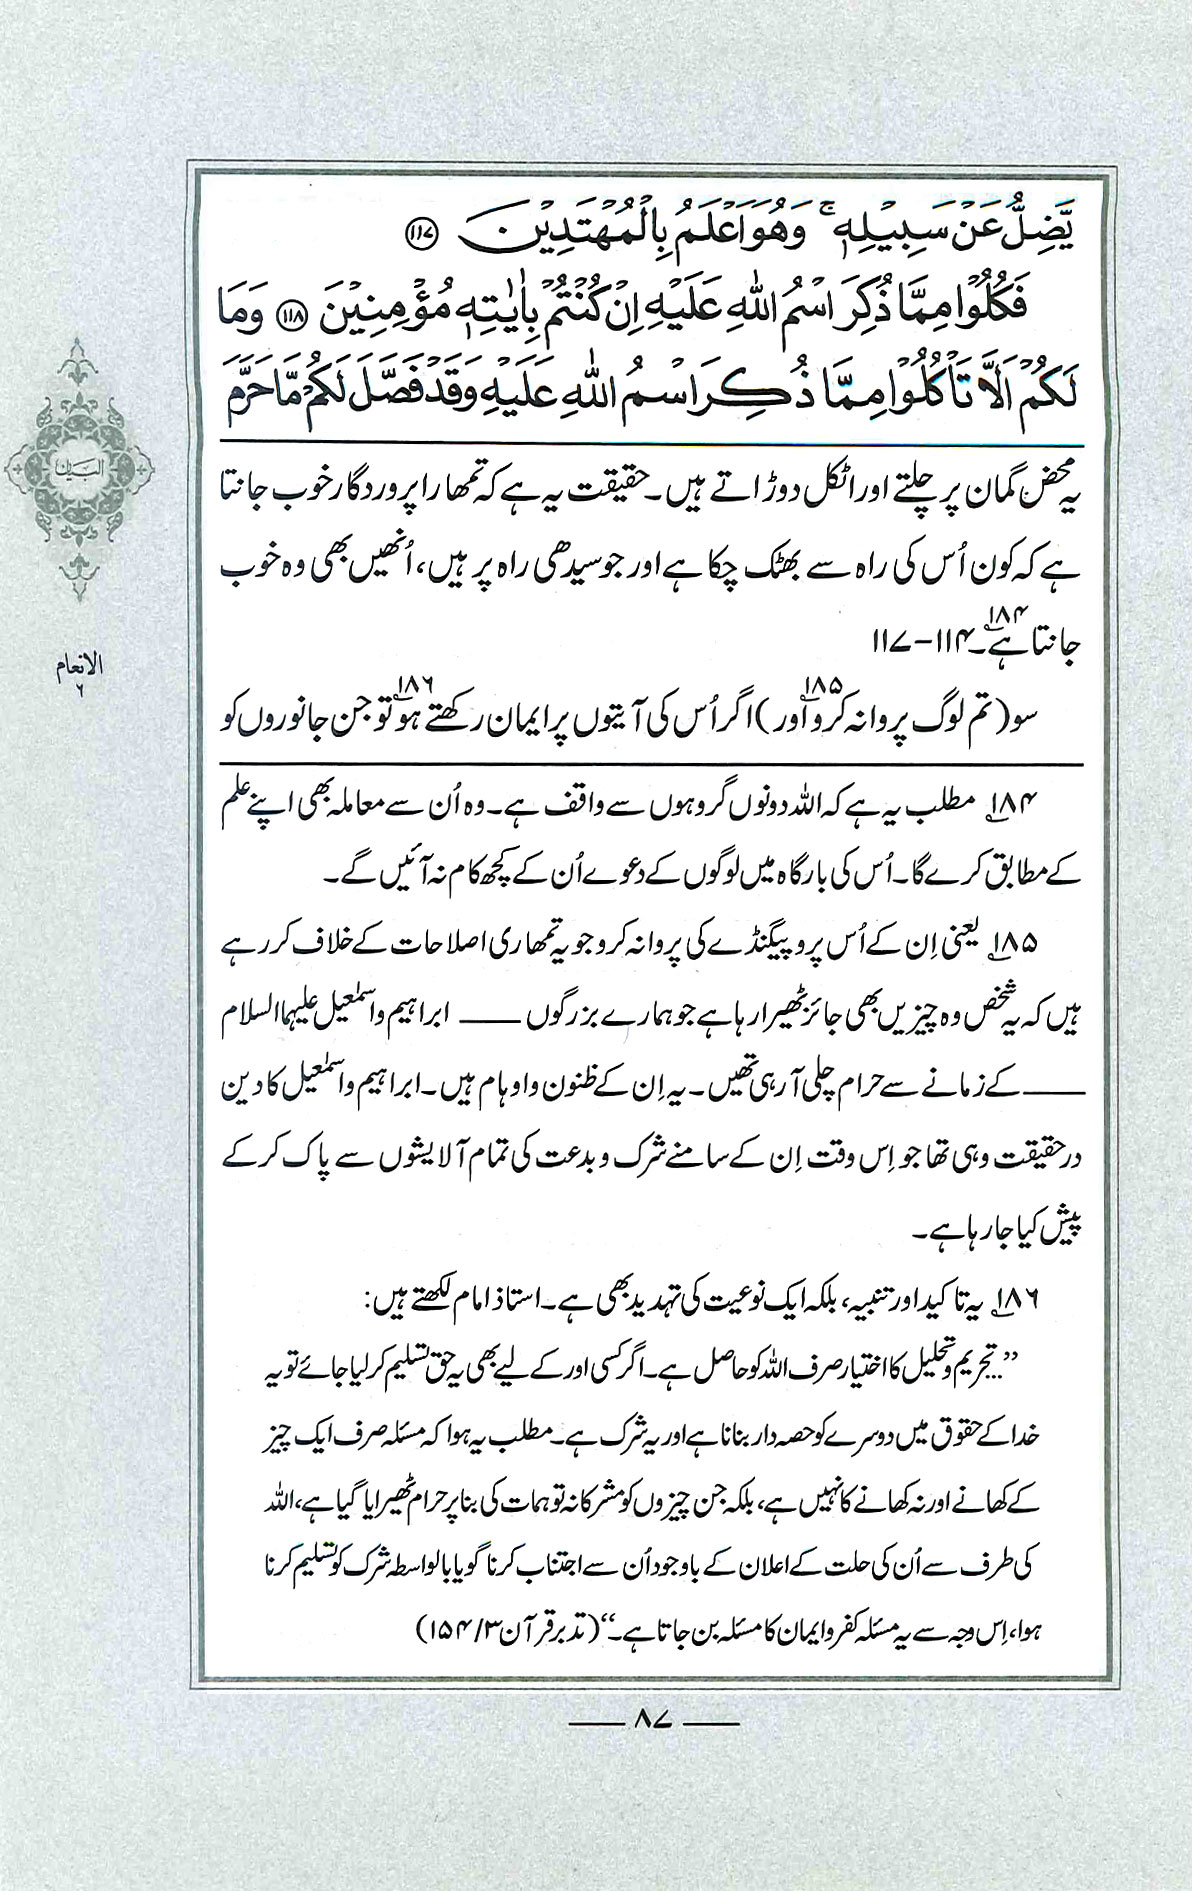 يَّضِلُّ عَنْ سَبِيْلِهٖ ۚ وَهُوَ اَعْلَمُ بِالْمُهْتَدِيْنَ ﴿۱۱۷﴾
فَكُلُوْا مِمَّا ذُكِرَ اسْمُ اللّٰهِ عَلَيْهِ اِنْ كُنْتُمْ بِاٰيٰتِهٖ مُؤْمِنِيْنَ ﴿۱۱۸﴾ وَمَا
لَكُمْ اَلَّا تَاْكُلُوْا مِمَّا ذُكِرَ اسْمُ اللّٰهِ عَلَيْهِ وَقَدْ فَصَّلَ لَكُمْ مَّا حَرَّمَ
یہ محض گمان پر چلتے اور اٹکل دوڑاتے ہیں۔ حقیقت یہ ہے کہ تمھارا پروردگار خوب جانتا
ہے کہ کون اُس کی راہ سے بھٹک چکا ہے اور جو سیدھی راہ پر ہیں، اُنھیں بھی وہ خوب
جانتا ہے۔۱۸۴ ۱۱۴-۱۱۷
سو (تم لوگ پروا نہ کرو۱۸۵ اور) اگر اُس کی آیتوں پر ایمان رکھتے ہو۱۸۶ تو جن جانوروں کو
۱۸۴ مطلب یہ ہے کہ اللہ دونوں گروہوں سے واقف ہے۔ وہ اُن سے معاملہ بھی اپنے علم
کے مطابق کرے گا۔ اُس کی بارگاہ میں لوگوں کے دعوے اُن کے کچھ کام نہ آئیں گے۔
۱۸۵ یعنی اِن کے اُس پروپیگنڈے کی پروا نہ کرو جو یہ تمھاری اصلاحات کے خلاف کر رہے
ہیں کہ یہ شخص وہ چیزیں بھی جائز ٹھیرا رہا ہے جو ہمارے بزرگوں ___ ابراہیم و اسمٰعیل علیہما السلام
___ کے زمانے سے حرام چلی آ رہی تھیں۔ یہ اِن کے ظنون و اوہام ہیں۔ ابراہیم و اسمٰعیل کا دین
درحقیقت وہی تھا جو اِس وقت اِن کے سامنے شرک و بدعت کی تمام آلایشوں سے پاک کر کے
پیش کیا جا رہا ہے۔
۱۸۶ یہ تاکید اور تنبیہ، بلکہ ایک نوعیت کی تہدید بھی ہے۔ استاذ امام لکھتے ہیں:
”...تحریم و تحلیل کا اختیار صرف اللہ کو حاصل ہے۔ اگر کسی اور کے لیے بھی یہ حق تسلیم کر لیا جائے تو یہ
خدا کے حقوق میں دوسرے کو حصہ دار بنانا ہے اور یہ شرک ہے۔ مطلب یہ ہوا کہ مسئلہ صرف ایک چیز
کے کھانے اور نہ کھانے کا نہیں ہے، بلکہ جن چیزوں کو مشرکانہ توہمات کی بنا پر حرام ٹھیرایا گیا ہے، اللہ
کی طرف سے اُن کی حلت کے اعلان کے باوجود اُن سے اجتناب کرنا گویا بالواسطہ شرک کو تسلیم کرنا
ہوا، اِس وجہ سے یہ مسئلہ کفر و ایمان کا مسئلہ بن جاتا ہے۔“ (تدبر قرآن ۳/۱۵۴)
البیان
الانعام
۶
۸۷